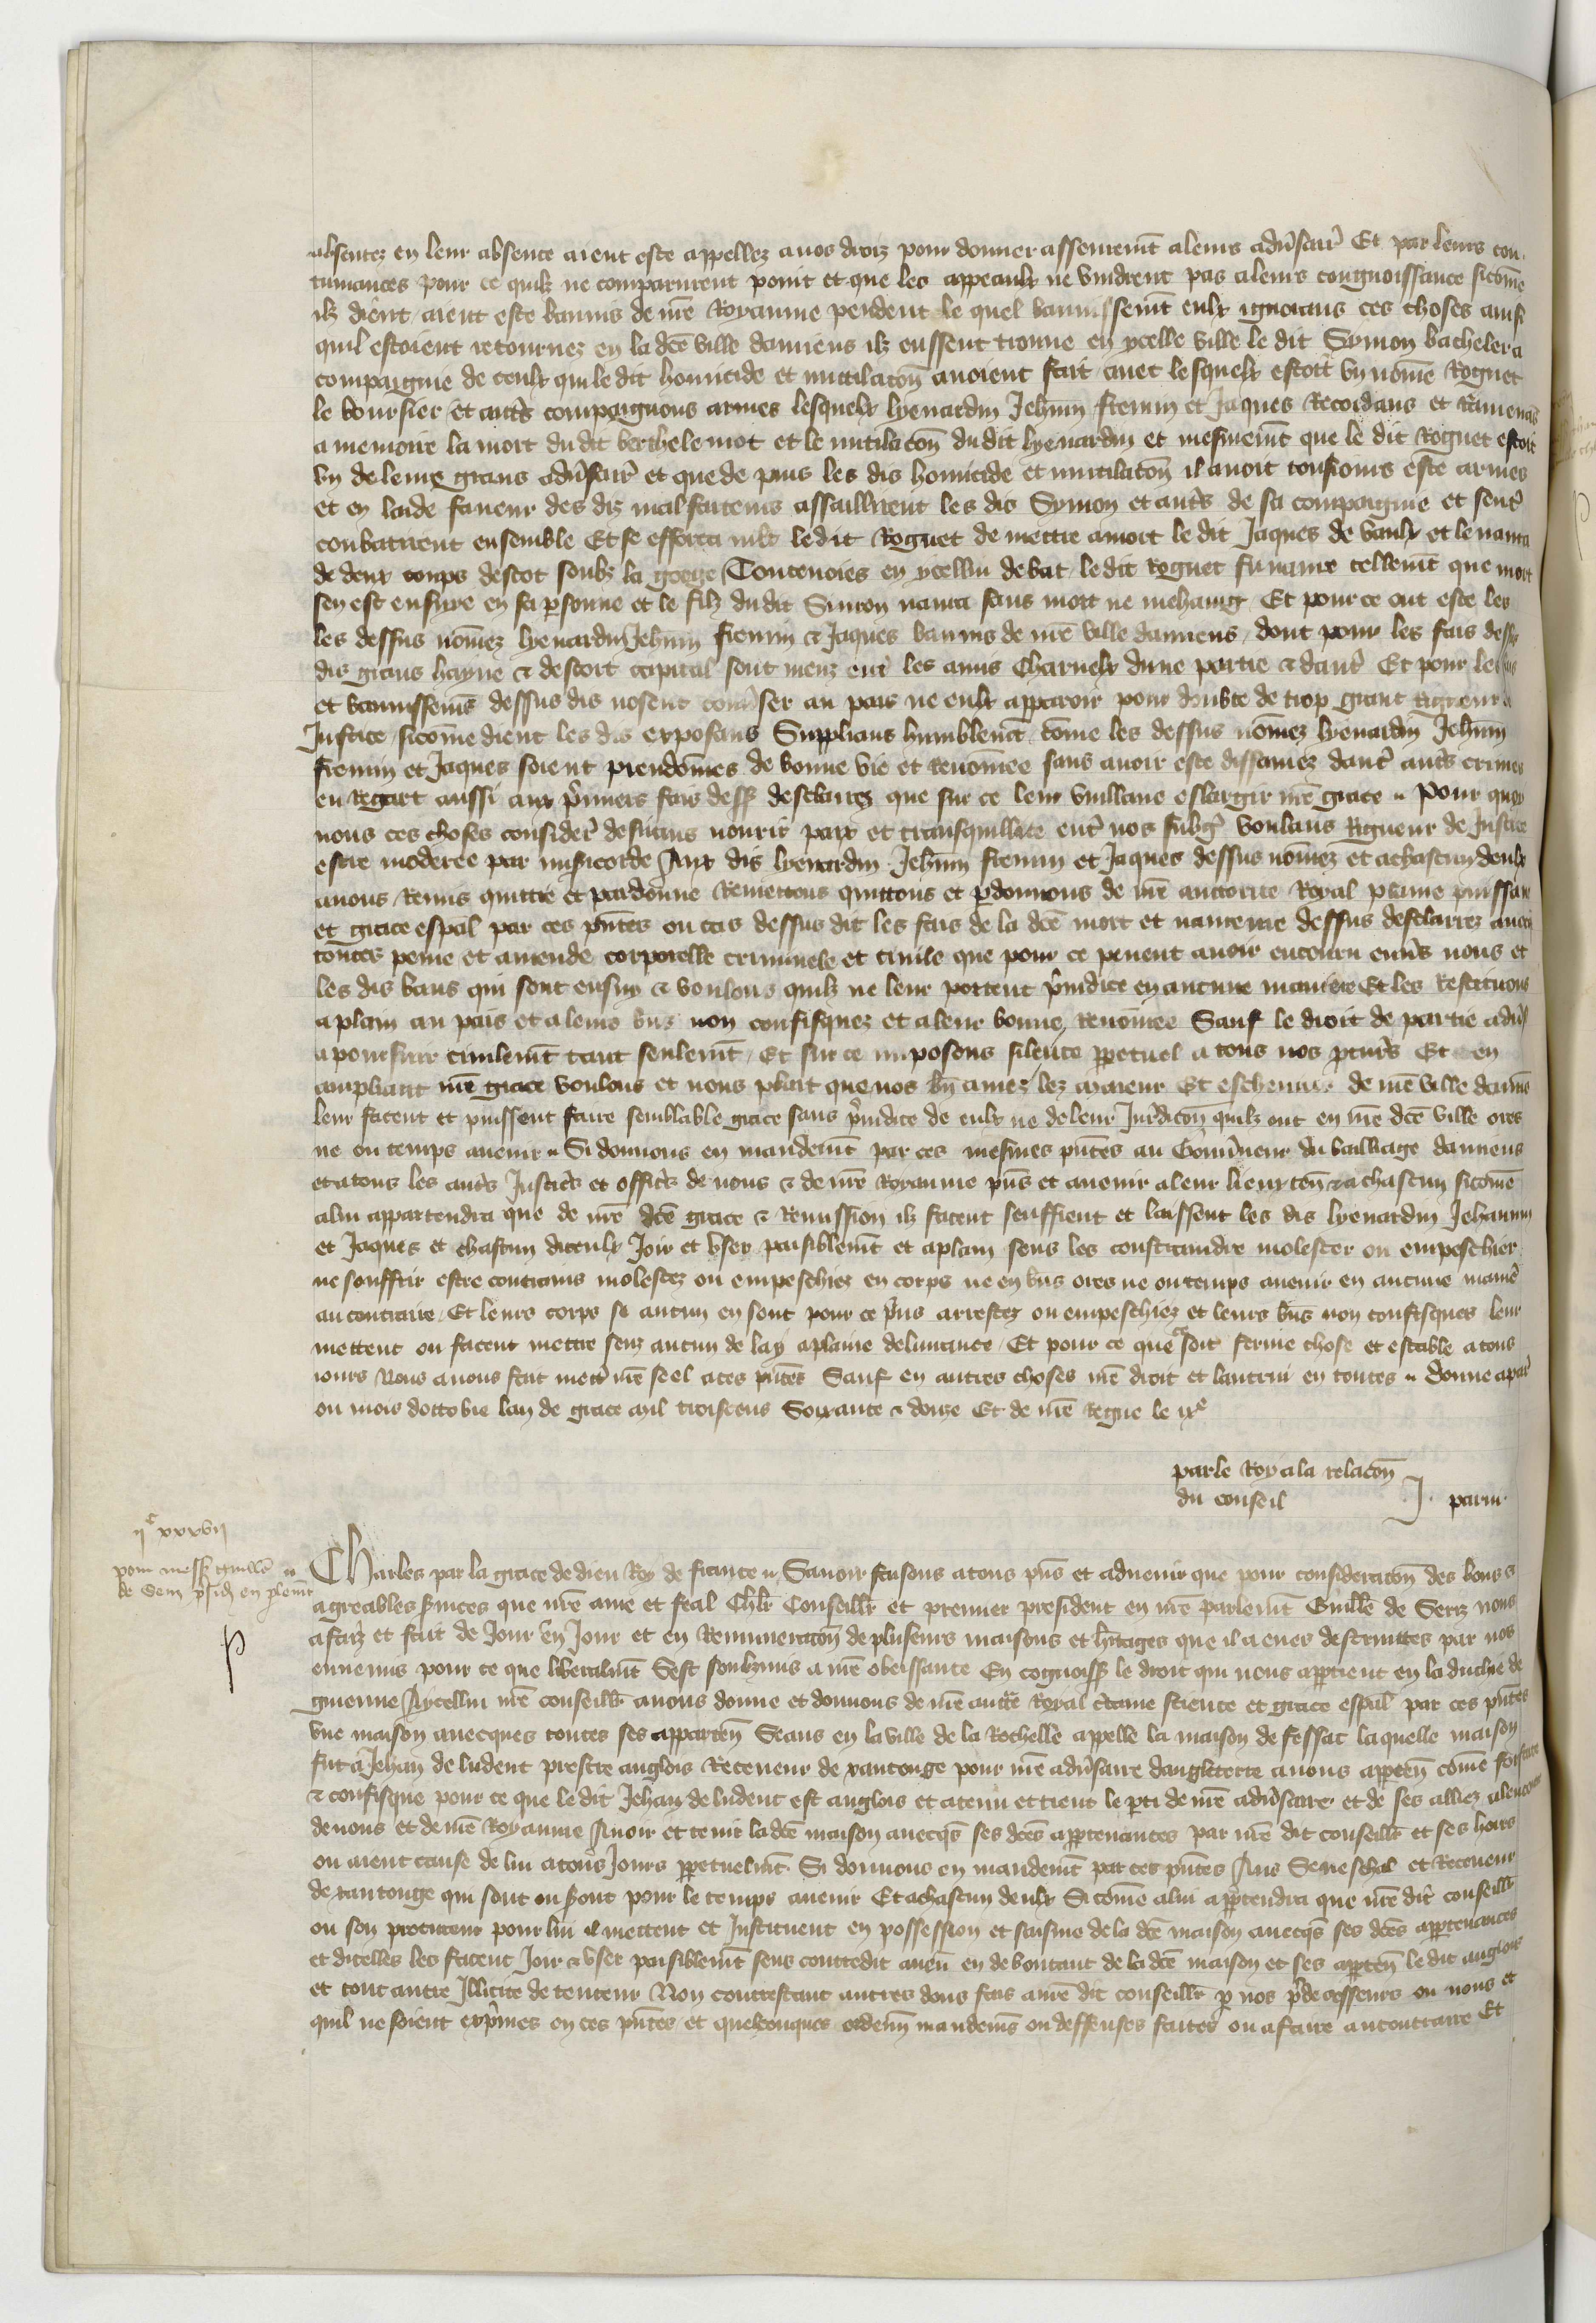 absentez en leur absence aient este appellez a nos droiz pour donner asseurem̄t a leurs adv̄sair̄ Et par leurs con
tumaces pour ce quilz ne comparurent point et que les appeaulx ne vindrent pas a leurs congnoissance sicōme
ilz dient aient este bannis de nr̄e Royaume pendent le quel bannissem̄t eulx ignorans ces choses ainsi
quil estoient retournez en la dc̄e ville damiens ilz eussent trouue en ycelle ville le dit Symon bachelera
compaignie de ceulx qui le dit homicide et mutilacōn auoient fait auec lesquelx estoit vn nōme Roguet
le boursier et autr̄s compaignons armes lesquelx lyenardin Jehn̄in fremin et Jaques Recordans et Ramenās
a memoire la mort du dit berthelemot et le mutilacōn du dit lyenardin et mesmem̄t que le dit Roguet estoit
vn de leurs grans adv̄sair̄ et que de puis les dis homicide et mutilacōn il auoit tousiours este armes
et en laide faueur des diz malfaiteurs assaillirent les dis Symon et autr̄s de sa compaignie et sentr̄
conbatirent ensemble Et se efforca mlt̄ le dit Roguet de mettre a mort le dit Jaques de vaulx et le naura
de deux coups destoc soubz la gorge Toutenoies en ycellui debat le dit Roguet fu naure tellem̄t que mort
sen est ensyue en sa p̄sonne et le filz du dit Simon naura sans mort ne mehaing Et pour ce ont este les
les dessus nōmez lyenardin Jehn̄in fremin & Jaques bannis de nr̄e ville damiens dont pour les fais dessus
dis grans hayne & descort capital sont menz entr̄ les amis Charnelx dune partie & dautr̄ Et pour les fais
et bannissem̄s dessus dis nosent conūser au pais ne eulx apparoir pour doubte de trop grant Rigueur de
Justice sicōme dient les dis exposans Supplians humblem̄t cōme les dessus nōmez lyenardin Jehn̄in
fremin et Jaques soient preudōmes de bonne vie et Renōmee sans auoir este diffamez dautr̄ autr̄s crimes
en Regart aussi aux p̄miers fais dess̄ desclairez que sur ce leur vuillans eslargir nr̄e grace Pour quoy
nous ces choses considerr̄ desirans nourir paix et transquillite entr̄ nos subgr̄ voulans Rigueur de Justice
estre moderee par misericorde Aux dis lyenardin Jehn̄in fremin et Jaques dessus nōmez et a chascun deulx
auons Remis quittie et pardonne Remettons quittons et p̄donnons de nr̄e auctorite Royal plaine puissance
et grace esp̄al par ces p̄ntes ou cas dessus dit les fais de la dc̄e mort et naureure dessus desclairez auec
toutes peine et amende corporelle criminele et ciuile que pour ce peuent auoir encouru enūs nous et
les dis bans qui sont ensuy & voulons quilz ne leur portent p̄iudice en aucune maniere Et les Restituons
a plain au pais et a leurs bn̄s non confisquez et a leur bonne Renōmee Sauf le droit de partie adv̄s
a poursuir ciuilem̄t tant seulem̄t Et sur ce imposons silence pp̄etuel a tous nos p̄cur̄s Et en
ampliant nr̄e grace voulons et nous plait que nos bn̄ amez lez maieur Et escheuins de nr̄e ville damiē
leur facent et puissent faire semblable grace sans p̄iudice de eulx ne de leur Jur̄dicōn quilz ont en nr̄e dc̄e ville ores
ne ou temps auenir Si donnons en mandem̄t par ces mesmes p̄ntes au Gouūneur du bailliage damiens
et a tous les autr̄s Justicr̄s et officr̄s de nous & de nr̄e Royaume p̄ns et auenir a leur lieuxten̄ & a chascun sicōme
a lui appartendra que de nr̄e dc̄e grace & Remission ilz facent seuffrent et laissent les dis lyenardin Jehannin
et Jaques et chascun diceulx Joir et vser paisiblem̄t et a plain sens les constraindre molester ou empeschier
ne souffrir estre contrains molestez ou empeschiez en corps ne en bn̄s ores ne ou temps auenir en aucune manir̄
au contraire Et leurs corps se aucun en sont pour ce p̄ns arrestez ou empeschiez et leurs bn̄s non confisques leur
mettent ou facent mettre senz aucun delay a plaine deliurance Et pour ce que soit ferme chose et estable a tous
iours Nous auons fait mettr̄ nr̄e seel a ces p̄ntes Sauf en autres choses nr̄e droit et lautrui en toutes Donne a par̄
ou mois doctobre lan de grace mil troiscens Soixante & douze Et de nr̄e Regne le ixᵉ
par le Roy a la relacōn
du conseil J. parui.
ijᶜ xxxvij
pour mess̄ Guillē
de Seriz p̄sid̄ en p̄lem̄t
Charles par la grace de dieu Roy de france Sauoir faisons a tous p̄ns et aduenir que pour consideracōn des bons &
agreables s̄uices que nr̄e ame et feal chl̄r Conseillr̄ et premier president en nr̄e parlem̄t Guillē de Seriz nous
a faiz et fait de Jour en Jour et en Remuneracōn de pluseurs maisons et h̄itages que il a eues destruittes par nos
ennemis pour ce que liberalm̄t Sest soubzmis a nr̄e obeissance En cognoiss̄ le droit qui nous app̄tient en la duchie de
guienne Aycellui nr̄e conseillr̄ auons donne et donnons de nr̄e auctr̄e Royal c̄taine science et grace esp̄al par ces p̄ntes
vne maison auecques toutes ses apparten̄ Seans en la ville de la Rochelle appelle la maison de fessac laquelle maison
fut a Jehan de ludent prestre anglois Receueur de xantonge pour nr̄e adv̄saire dangleterre a nous app̄ten̄ cōme forfaite
& confisque pour ce que le dit Jehan de ludent est anglois et a tenu et tient le p̄ti de nr̄e adv̄saire et de ses alliez a lencontre
de nous et de nr̄e Royaume Auoir et tenir la dc̄e maison auecqs̄ ses dc̄es app̄tenances par nr̄e dit conseillr̄ et ses hoirs
ou aient cause de lui a tous Jours pp̄etuelm̄t Si donnons en mandem̄t par ces p̄ntes Aus Seneschal et Receueur
de xantonge qui sont ou s̄ont pour le temps auenir Et a chascun deulx Sicōme a lui app̄tendra que nr̄e dit conseillr̄
ou son procureur pour lui il mettent et Instituent en possession et saisine de la dc̄e maison auecqs̄ ses dc̄es app̄tenances
et dicelles les facent Joir & vser paisiblem̄t sens contredit aucū en deboutant de la dc̄e maison et ses app̄ten̄ le dit anglois
et tout autre Illicite detenteur Non contrestant autres dons fais a nr̄e dit conseillr̄ p̄ nos p̄decesseurs ou nous et
quil ne soient exp̄mes en ces p̄ntes et quelconques ordenn̄ mandem̄s ou deffenses faites ou a faire au contraire Et